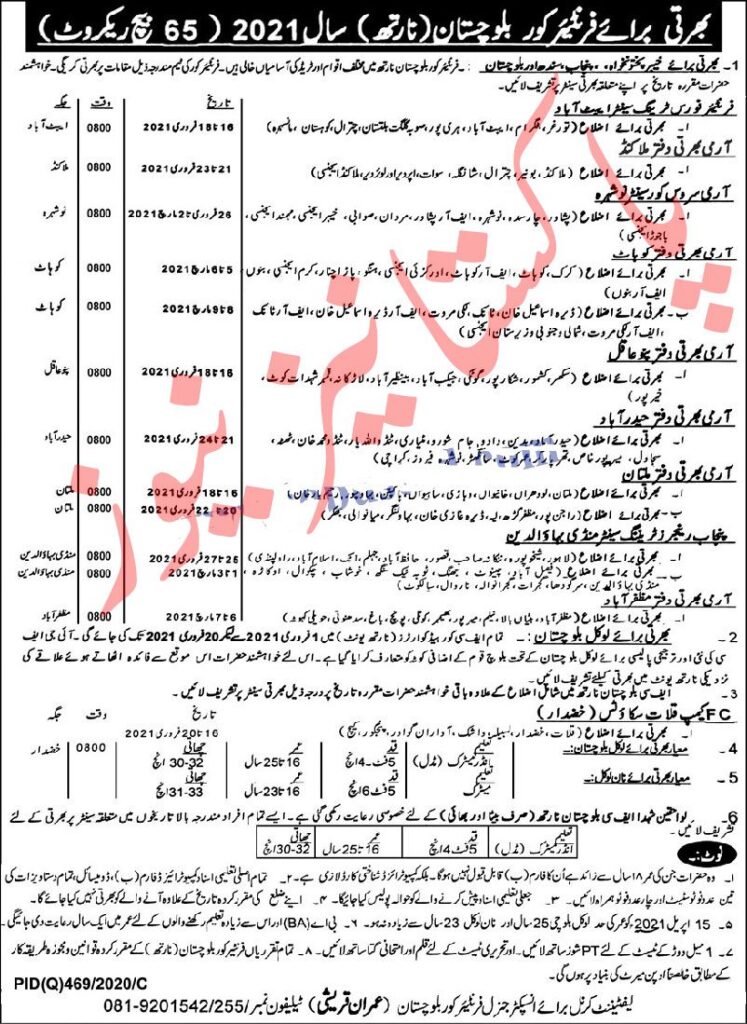 بھرتی برائے فرنٹیئر کور بلوچستان (نارتھ) سال 2021 ( 65 بیچ ریکروٹ )
1- بھرتی برائے خیبر پختونخواہ، پنجاب، سندھ اور بلوچستان :۔ فرنٹیئر کور بلوچستان نارتھ میں مختلف اقوام اور ٹریڈ کی آسامیاں خالی ہیں۔ فرنٹیئر کور کی ٹیم مندرجہ ذیل مقامات پر بھرتی کریگی۔ خواہشمند
حضرات مقررہ تاریخ پر اپنے متعلقہ بھرتی سینٹر پر تشریف لائیں۔
تاریخ وقت جگہ
فرنٹیئر فورس ٹریننگ سینٹر ایبٹ آباد
ا۔ بھرتی برائے اضلاع (تورغر، بٹگرام، ایبٹ آباد، ہری پور، صوبہ گلگت بلتستان، چترال، کوہستان، مانسہرہ) 16 تا 18 فروری 2021 0800 ایبٹ آباد
آرمی بھرتی دفتر ملاکنڈ
ا۔ بھرتی برائے اضلاع (ملاکنڈ، بونیر، چترال، شانگلہ، سوات، اپر دیر اور لوئر دیر، ملاکنڈ ایجنسی) 21 تا 23 فروری 2021 0800 ملاکنڈ
آرمی سروس کور سینٹر نوشہرہ
ا۔ بھرتی برائے اضلاع (پشاور، چارسدہ، نوشہرہ، ایف آر پشاور، مردان، صوابی، خیبر ایجنسی، مہمند ایجنسی، 26 فروری تا 2 مارچ 2021 0800 نوشہرہ
باجوڑ ایجنسی)
آرمی بھرتی دفتر کوہاٹ
ا۔ بھرتی برائے اضلاع (کرک، کوہاٹ، ایف آر کوہاٹ، اورکزئی ایجنسی، ہنگو، پاڑا چنار، کرم ایجنسی، بنوں، 5 تا 6 مارچ 2021 0800 کوہاٹ
ایف آر بنوں)
ب۔ بھرتی برائے اضلاع (ڈیرہ اسماعیل خان، ٹانک، لکی مروت، ایف آر ڈیرہ اسماعیل خان، ایف آر ٹانک 8 تا 9 مارچ 2021 0800 کوہاٹ
، ایف آر لکی مروت، شمالی و جنوبی وزیرستان ایجنسی)
آرمی بھرتی دفتر پنو عاقل
ا۔ بھرتی برائے اضلاع (سکھر، کشمور، شکار پور، گھوٹکی، جیکب آباد، بینظیر آباد، لاڑکانہ، قمبر شہداد کوٹ، 16 تا 18 فروری 2021 0800 پنو عاقل
خیر پور)
آرمی بھرتی دفتر حیدر آباد
ا۔ بھرتی برائے اضلاع (حیدر آباد، بدین، دادو، جام شورو، مٹیاری، ٹنڈو اللہ یار، ٹنڈو محمد خان، ٹھٹھہ، 21 تا 24 فروری 2021 0800 حیدر آباد
سجاول، میر پور خاص، تھرپارکر، عمر کوٹ، سانگھڑ، نوشہرو فیروز، کراچی)
آرمی بھرتی دفتر ملتان
ا۔ بھرتی برائے اضلاع (ملتان، لودھراں، خانیوال، وہاڑی، ساہیوال، پاکپتن، بہاولپور، رحیم یار خان) 16 تا 18 فروری 2021 0800 ملتان
ب۔ بھرتی برائے اضلاع (راجن پور، مظفر گڑھ، لیہ، ڈیرہ غازی خان، بہاولنگر، میانوالی، بھکر) 20 تا 22 فروری 2021 0800 ملتان
پنجاب رینجرز ٹریننگ سینٹر منڈی بہاؤالدین
ا۔ بھرتی برائے اضلاع (لاہور، شیخوپورہ، ننکانہ صاحب، قصور، حافظ آباد، جہلم، اٹک، اسلام آباد، راولپنڈی) 25 تا 27 فروری 2021 0800 منڈی بہاؤالدین
ب۔ بھرتی برائے اضلاع (فیصل آباد، چینوٹ، جھنگ، ٹوبہ ٹیک سنگھ، خوشاب، چکوال، اوکاڑہ، 1 تا 3 مارچ 2021 0800 منڈی بہاؤالدین
منڈی بہاؤالدین، سرگودھا، گجرات، گجرانوالہ، نارووال، سیالکوٹ)
آرمی بھرتی دفتر مظفر آباد
ا۔ بھرتی برائے اضلاع (مظفر آباد، ہٹیاں بالا، نیلم، میر پور، بھمبر، کوٹلی، پونچ، باغ، سدھنوتی، حویلی کہوٹہ) 6 تا 7 مارچ 2021 0800 مظفر آباد
2- بھرتی برائے لوکل بلوچستان :۔ تمام ایف سی ہیڈ کوارٹرز (نارتھ یونٹ) میں 1 فروری 2021 سے لیکر 20 فروری 2021 تک کی جائے گی۔ آئی جی ایف
سی کی نئی اور ترجیحی پالیسی برائے لوکل بلوچستان کے تحت بلوچ قوم کے اضافی کوٹہ کو متعارف کرایا گیا ہے۔ اس لئے خواہشمند حضرات اس موقع سے فائدہ اٹھاتے ہوئے علاقے کی
نزدیکی نارتھ یونٹ میں بھرتی کیلئے تشریف لائیں۔
3- ایف سی بلوچستان نارتھ میں شامل اضلاع کے علاوہ باقی خواہشمند حضرات مقررہ تاریخ پر درجہ ذیل بھرتی سینٹر پر تشریف لائیں۔
FC کیمپ قلات سکاؤٹس (خضدار) تاریخ وقت جگہ
ا۔ بھرتی برائے اضلاع (قلات، خضدار، لسبیلہ، واشک، آواران، گوادر، پنجگور، کیچ) 16 تا 20 فروری 2021 0800 خضدار
4- معیار بھرتی برائے لوکل بلوچستان:۔ تعلیم انڈر میٹرک (مڈل) قد 5 فٹ 4 انچ عمر 16 تا 25 سال چھاتی 30-32 انچ
5- معیار بھرتی برائے نان لوکل:۔ تعلیم میٹرک قد 5 فٹ 6 انچ عمر 16 تا 23 سال چھاتی 31-33 انچ
6- لواحقین شہدا ایف سی بلوچستان نارتھ (صرف بیٹا اور بھائی) کے لئے خصوصی رعایت رکھی گئی ہے۔ ایسے تمام افراد مندرجہ بالا تاریخوں میں متعلقہ سینٹر پر بھرتی کے لئے
تشریف لائیں۔
تعلیم انڈر میٹرک (مڈل) قد 5 فٹ 4 انچ عمر 16 تا 25 سال چھاتی 30-32 انچ
نوٹ:۔
۱۔ وہ حضرات جن کی عمر ۱۸ سال سے زائد ہے اُن کا فارم (ب) قابل قبول نہیں ہوگا۔ بلکہ کمپیوٹرائزڈ شناختی کارڈ لازمی ہے۔ ۲۔ تمام اصلی تعلیمی اسناد کمپیوٹرائیزڈ فارم (ب)، ڈومیسائل، تمام دستاویزات کی
تین عدد فوٹو سٹیٹ اور چار عدد فوٹو ہمراہ لائیں۔ ۳۔ جعلی تعلیمی اسناد پیش کرنے والے کو حوالہ پولیس کیا جائیگا۔ ۴۔ اپنے ضلع کی مقرر کردہ تاریخ کے علاوہ آنے والے کو بھرتی نہیں کیا جائے گا۔
۵۔ 15 اپریل 2021 کو عمر کی حد لوکل بلوچی 25 سال اور نان لوکل 23 سال سے زیادہ نہ ہو۔ ۶۔ بی اے (BA) اور اس سے زیادہ تعلیم رکھنے والوں کے لئے عمر میں ایک سال رعایت دی جائیگی۔
۷۔ 1 میل دوڑ کے ٹیسٹ کے لئے PT شوز ساتھ لائیں۔ اور تحریری ٹیسٹ کے لئے قلم اور امتحانی گتا ساتھ لائیں۔ ۸۔ تمام تقرریاں فرنٹیر کور بلوچستان (نارتھ) کے مقرر کردہ قوانین و مجوزہ طریقہ کار
کے مطابق خالصتاً اوپن میرٹ کی بنیاد پر ہوں گی۔
PID(Q)469/2020/C
لیفٹیننٹ کرنل برائے انسپکٹر جنرل فرنٹیئر کور بلوچستان (عمران قریشی) ٹیلیفون نمبر 081-9201542/255/
پاکستانیز نیوز